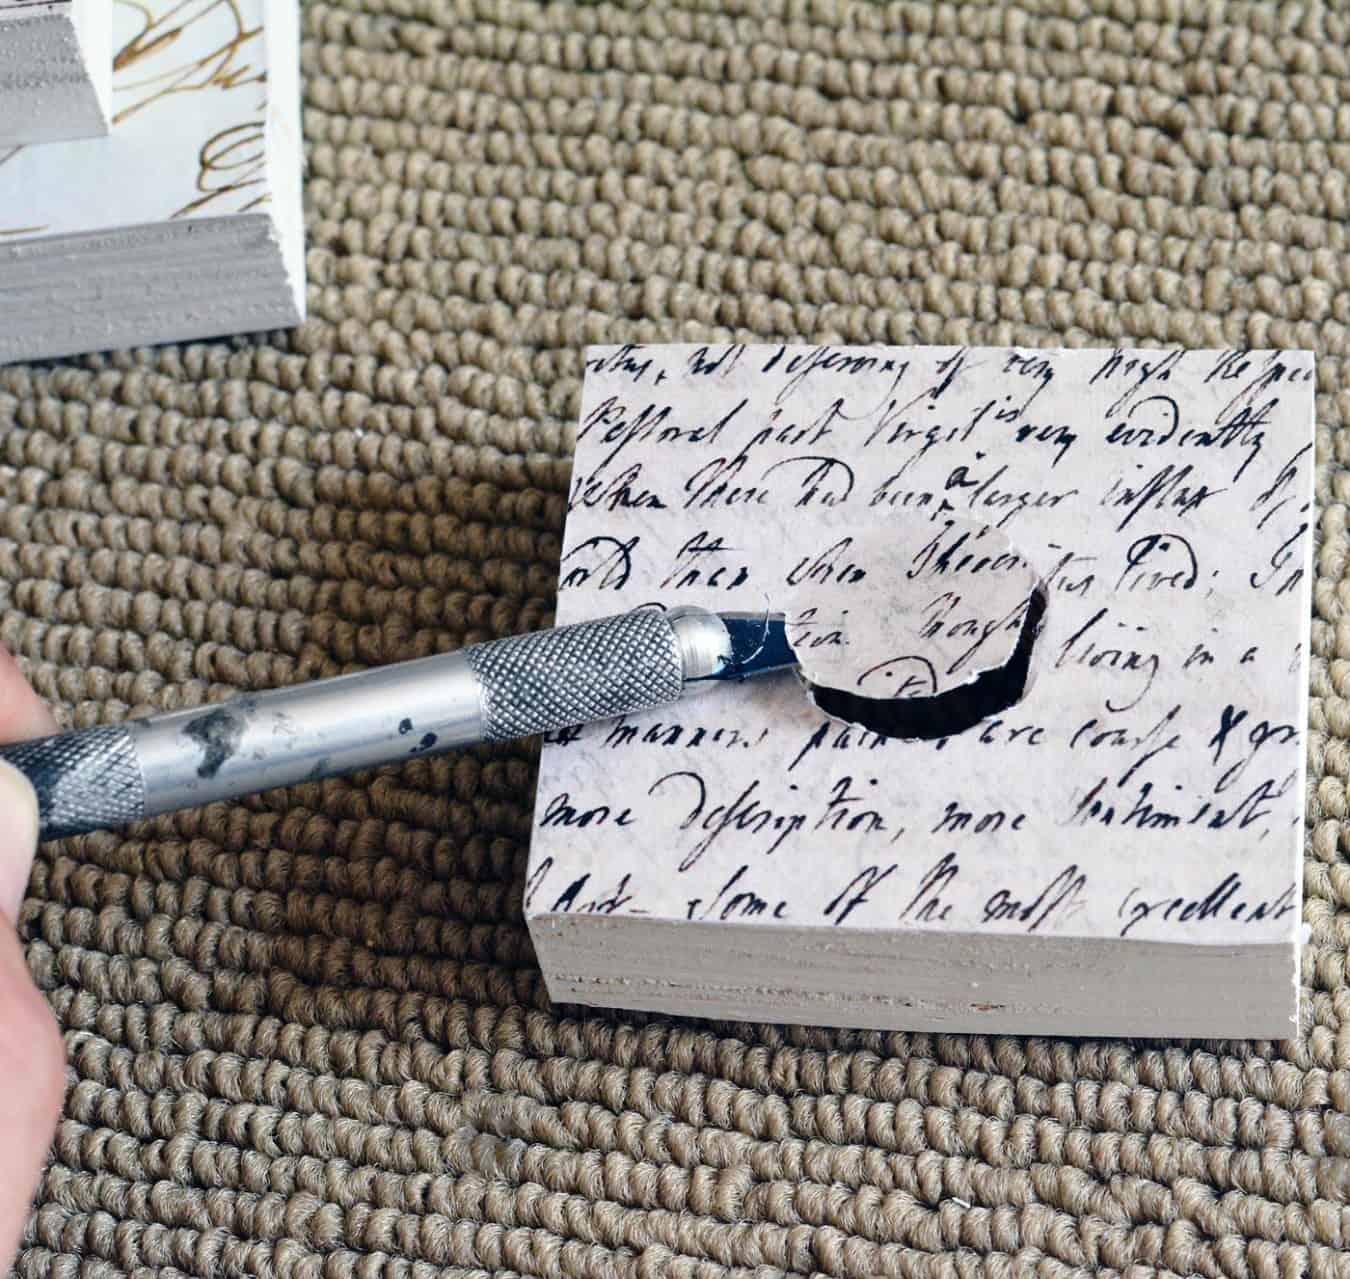 not deserving of very high Respec
Pastoral part Virgil is very evidently
when there had been a larger influx
than when Theocri tus lived; In
tion. Though living in a
manners paint are coarse & gr
more description, more sentiment,
some of the most excellent